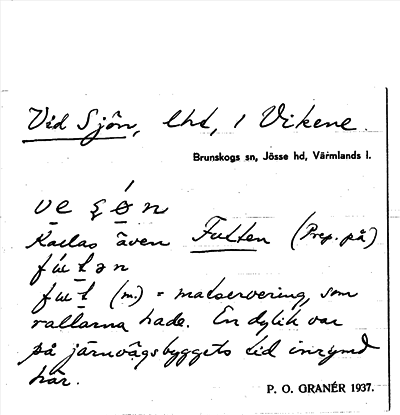 Vid Sjön, lhd, i Vikene
Brunskogs sn, Jösse hd, Värmlands l.
ve ʂǿn
Kallas även Futten (Prep. på)
fút ən
fut (m.) = matservering, som
rallarna hade. En dylik var
på järnvägsbyggets tid inrymd
här.
P. O. GRANÉR 1937.